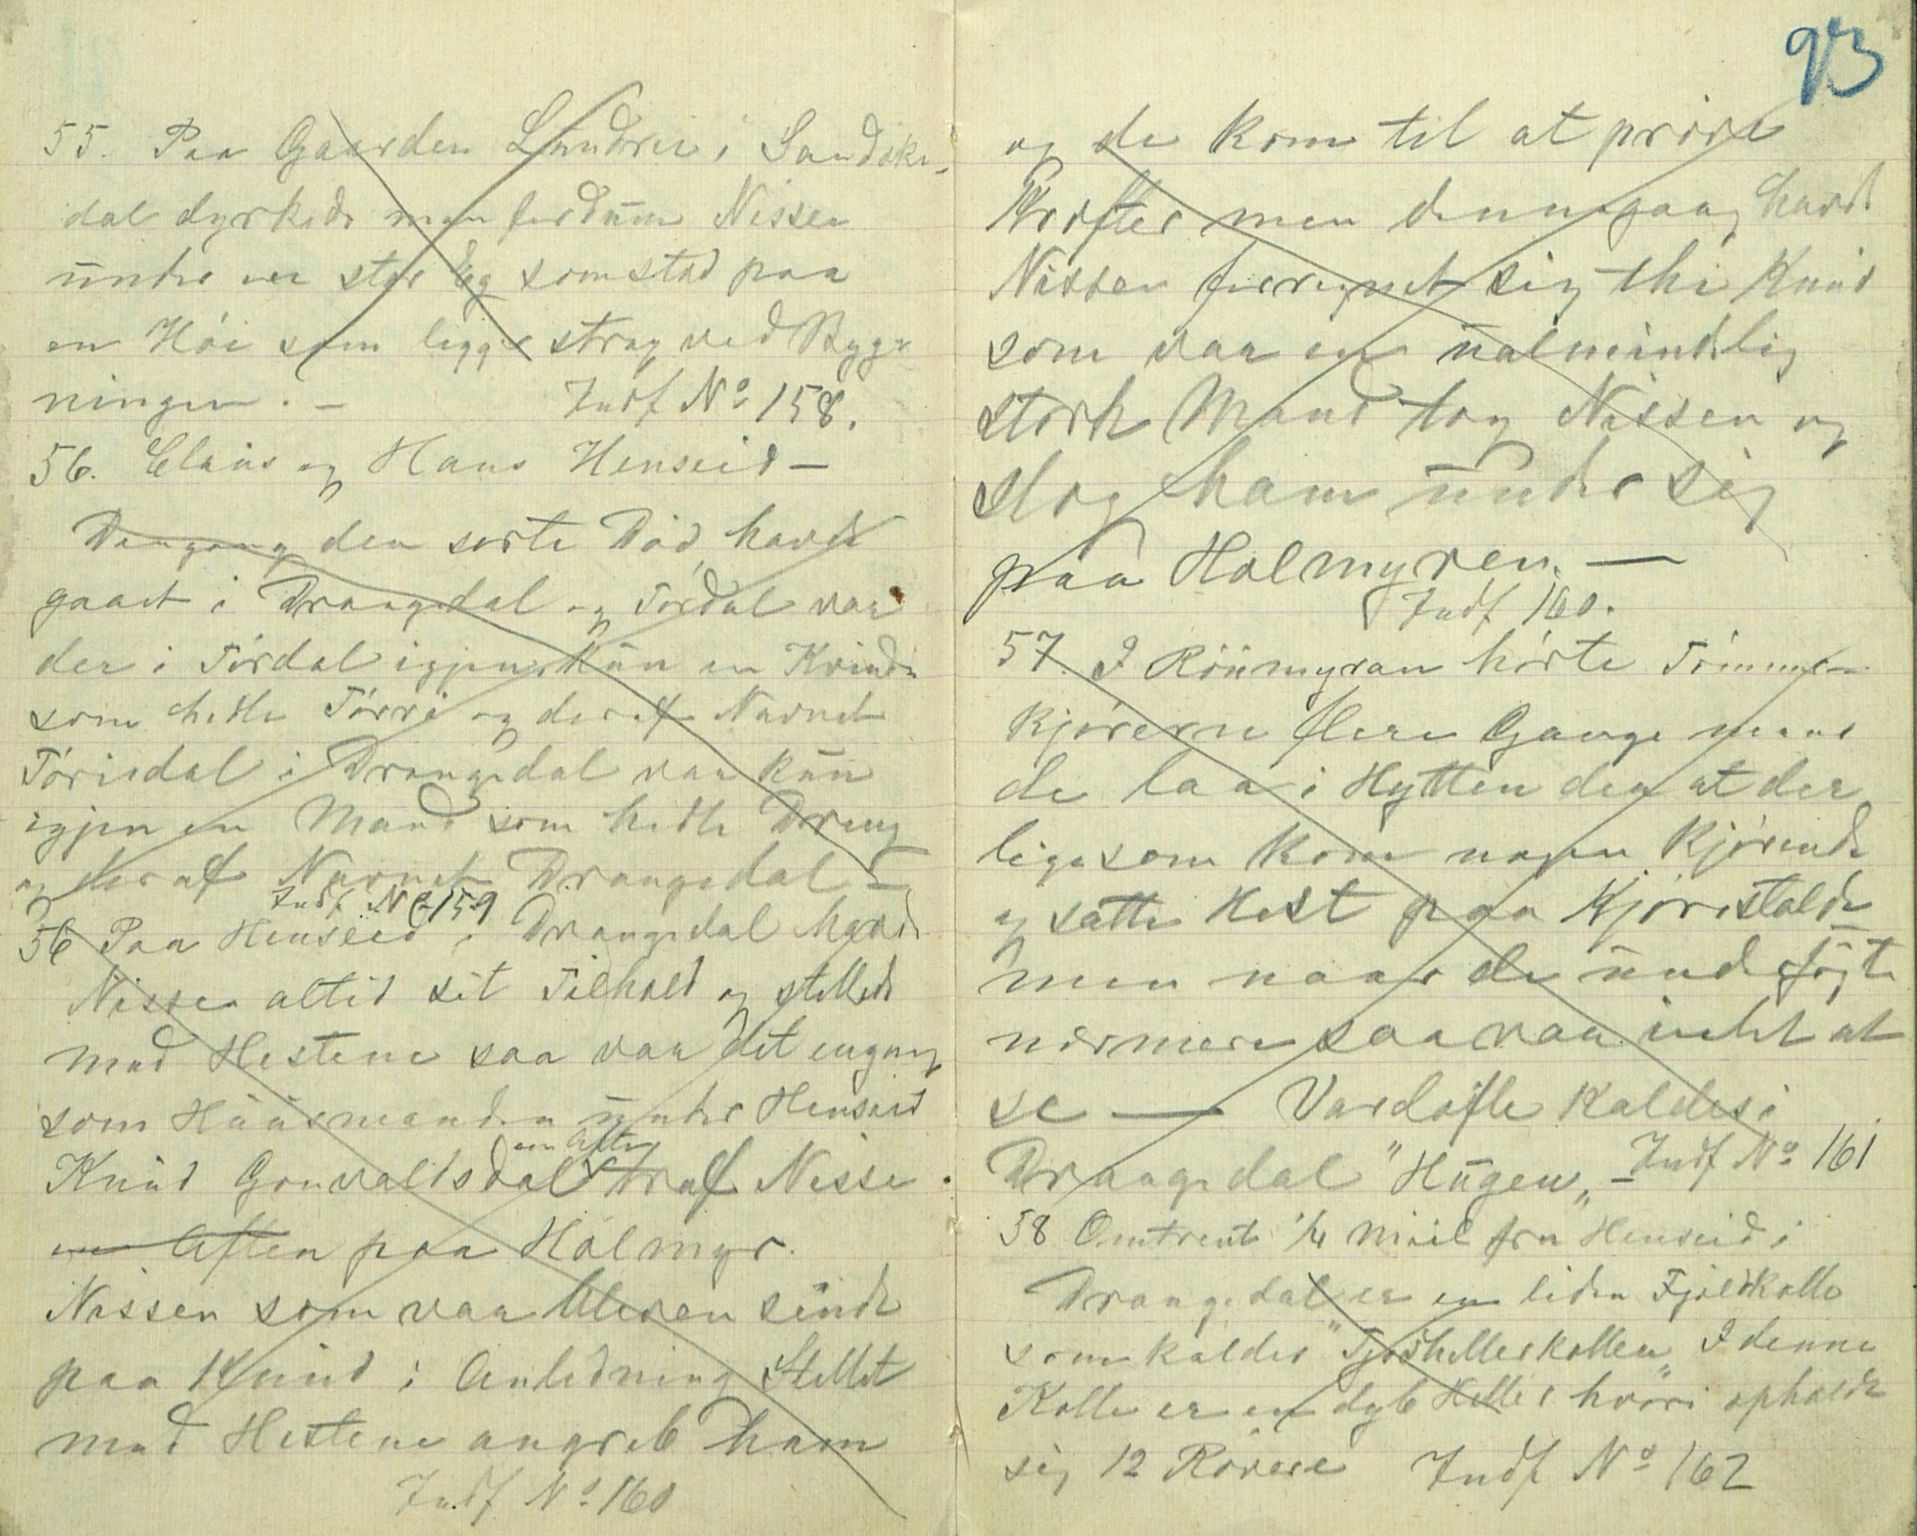 55. Paa Gaarden Lundrei i Sandøke-
dal dyrkede man fordum Nissen
under en stor Eg som stod paa
en Høi som ligger strax ved Byg-
ningen. - Indf No 158.
56. Claus og Hans Henseid -
Dengang den sorte Død havde
gaaet i Drangedal og Tørdal var
der i Tørdal igjen kun en Kvinde
som hedte Tørri og deraf Navnet
Tørisdal i Drangedal var kun
igjen en Mand som hedte Dreng
og deraf Navnet Drangedal -
Indf No 159
56 Paa Henseid i Drangedal havde
Nissen altid sit Tilhold og stellede
med Hestene saa var det engang
som Huusmanden under Henseid
en Aften
Knud Gonvaldsdal traf Nisse
en Aften paa Holmyr.
Nissen som var bleven sindt
paa Knud i Anledning Stellet
med Hestene angreb ham
Indf No 160
93
og de kom til at prøve
Kræfter men denne gang havde
Nissen forregnet sig thi Knud
som var en ualmindelig
stærk Mand tog Nissen og
slog ham under sig
paa Holmyren. -
Indf 160.
57. I Rönmyran hørte Tømmer-
kjørerne flere Gange mens
de laa i Hytten der at der
ligesom kom nogen kjørende
og satte Hest paa Kjørestalde
men naar de undersøgte
nærmere saa var intet at
se - Vardøfle kaldes i
Drangedal "Hugen„ - Indf No 161
58 Omtrent 1/4 Miil fra Henseid i
Drangedal er en liden Fjeldkolle
som kaldes "Tjoshellerkollen„ I denne
Kolle er en dyb Heller hvori opholdt
sig 12 Røvere Indf No 162